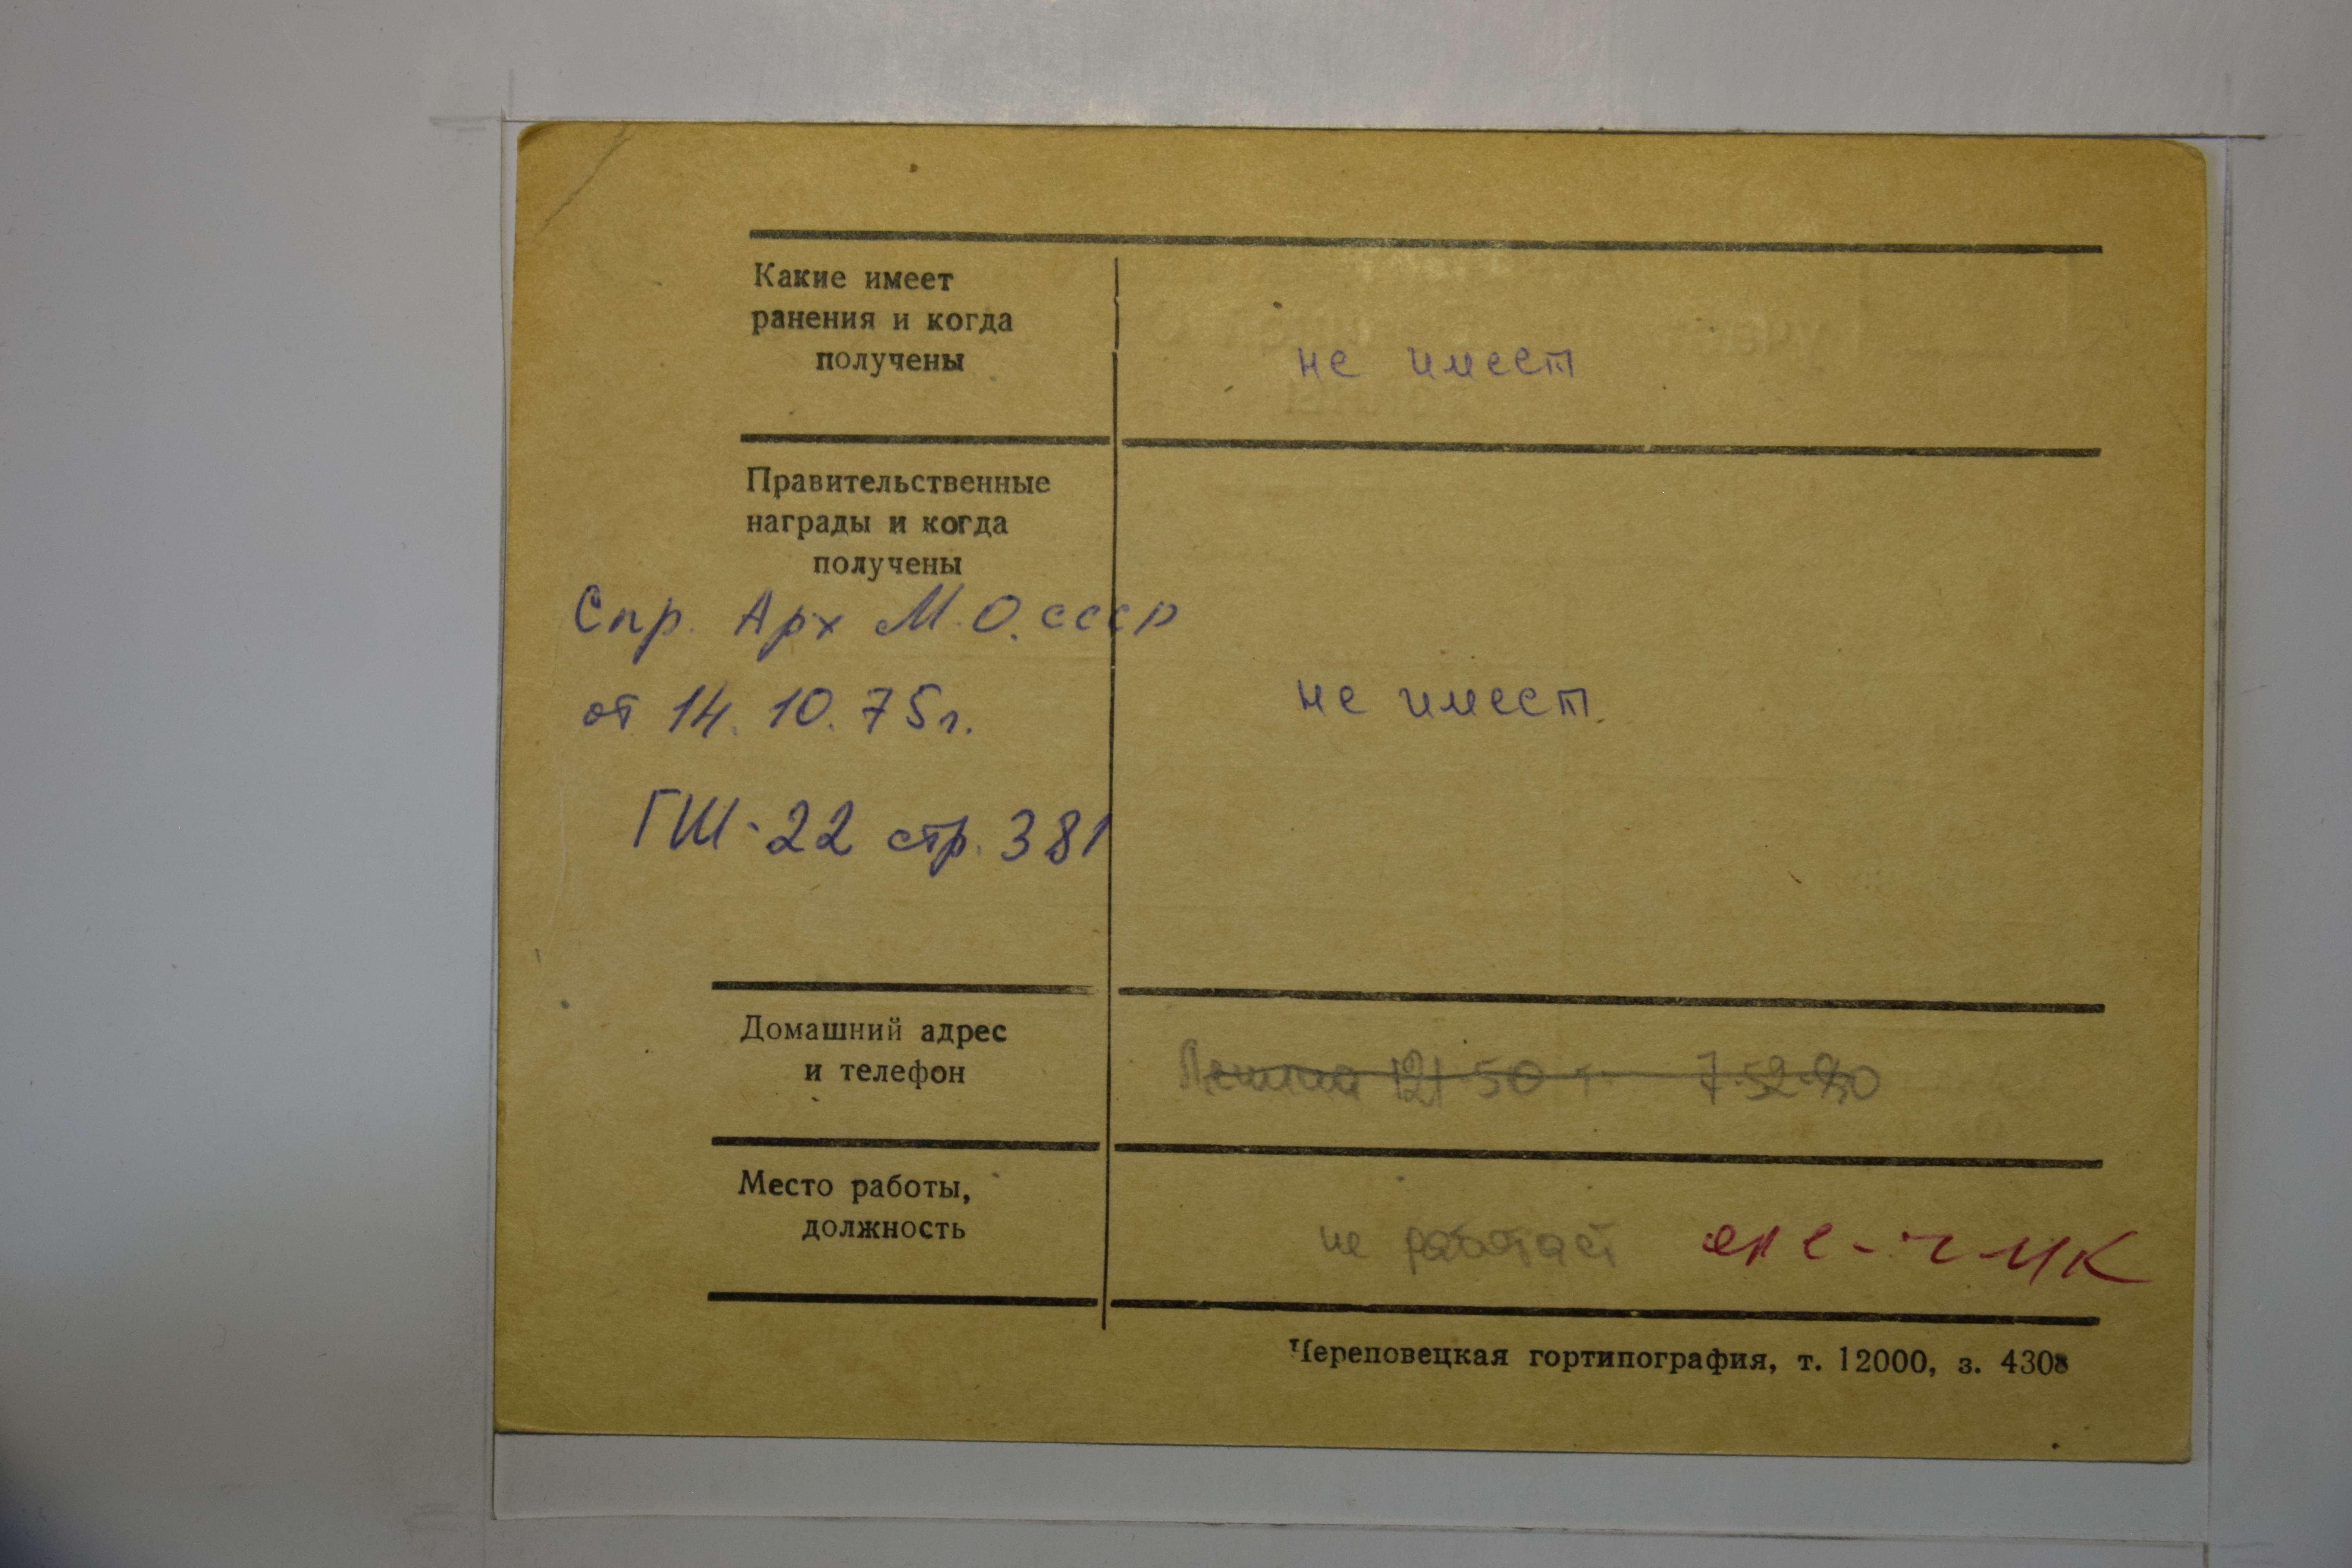 Какие имеет
ранения и когда
получены
не имеет
Правительственные
награды и когда
получены
Спр. Арх М.О. СССР
от 14.10.75г.
не имеет.
ГШ-22 стр. 381
Домашний адрес
и телефон
Ленина 121-50 т. 7-52-90
Место работы,
должность
не работает
Череповецкая гортипография, т. 12000, з. 4308